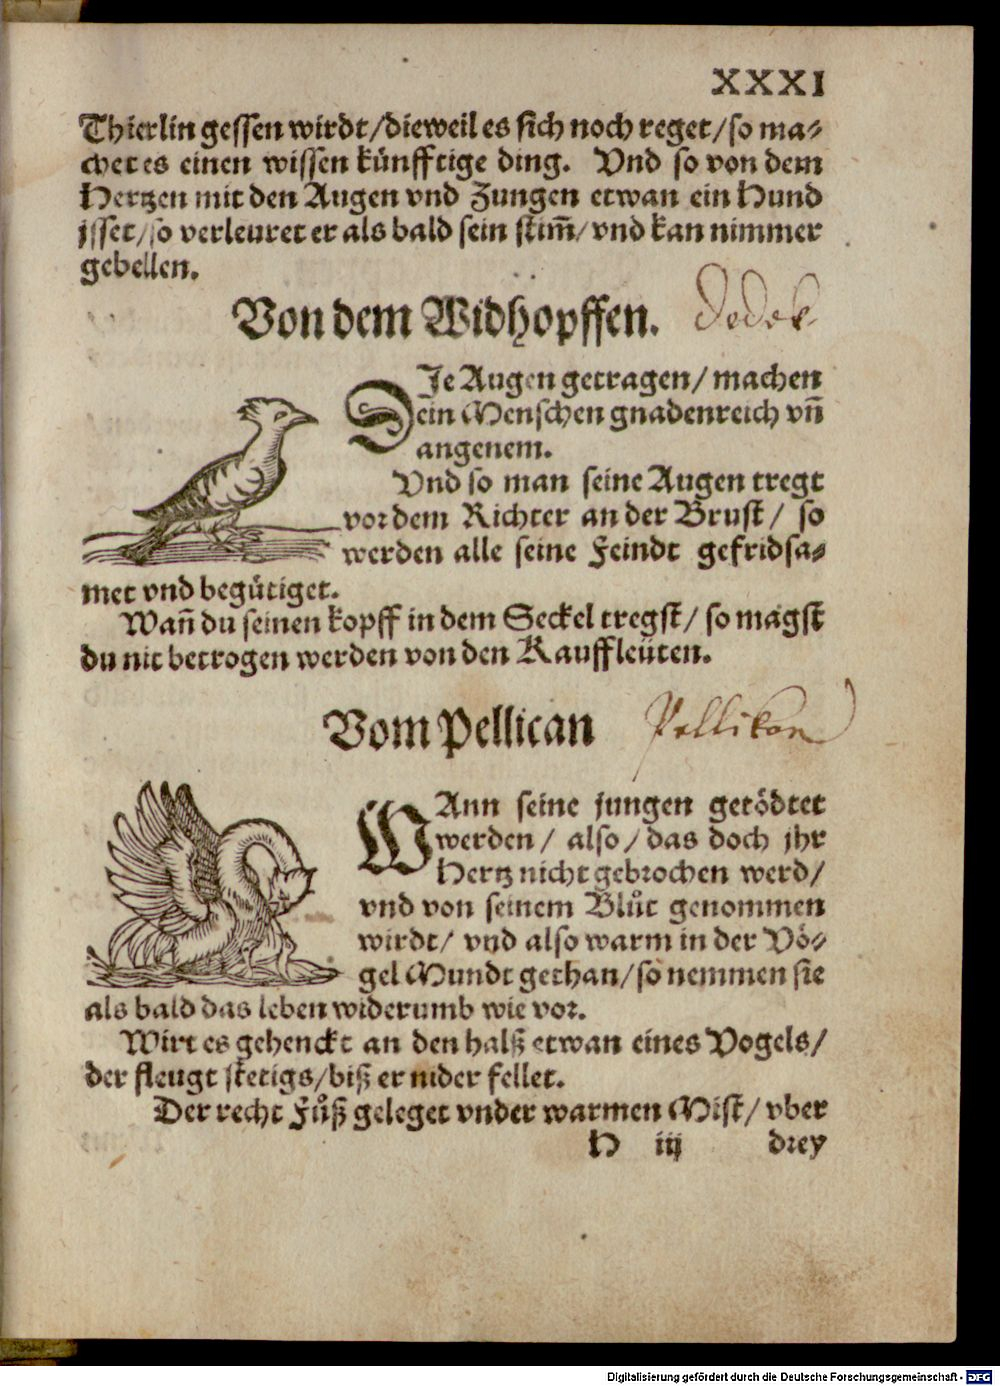 XXXI
Thierlin gessen wirdt/dieweil es sich noch reget/so ma⸗
chet es einen wissen künfftige ding. Vnd so von dem
Hertzen mit den Augen vnd Zungen etwan ein Hund
jsset/so verleuret er als bald sein stim̃/vnd kan nimmer
gebellen.
Von dem Widhopffen. Dedek
DJe Augen getragen/machen
ein Menschen gnadenreich vñ
angenem.
Vnd so man seine Augen tregt
vor dem Richter an der Brust/ so
werden alle seine Feindt gefridsa⸗
met vnd begütiget.
Wañ du seinen kopff in dem Seckel tregst/ so magst
du nit betrogen werden von den Kauffleüten.
Vom Pellican Pellikan
WAnn seine jungen getödtet
werden/ also/das doch jhr
Hertz nicht gebrochen werd/
vnd von seinem Blůt genommen
wirdt/ vnd also warm in der Vö⸗
gel Mundt gethan/so nemmen sie
als bald das leben widerumb wie vor.
Wirt es gehenckt an den halß etwan eines Vogels/
der fleugt stetigs/biß er nider fellet.
Der recht Fůß geleget vnder warmen Mist/ vber
H iij drey
Digitalisierung gefördert durch die Deutsche Forschungsgemeinschaft - DFG